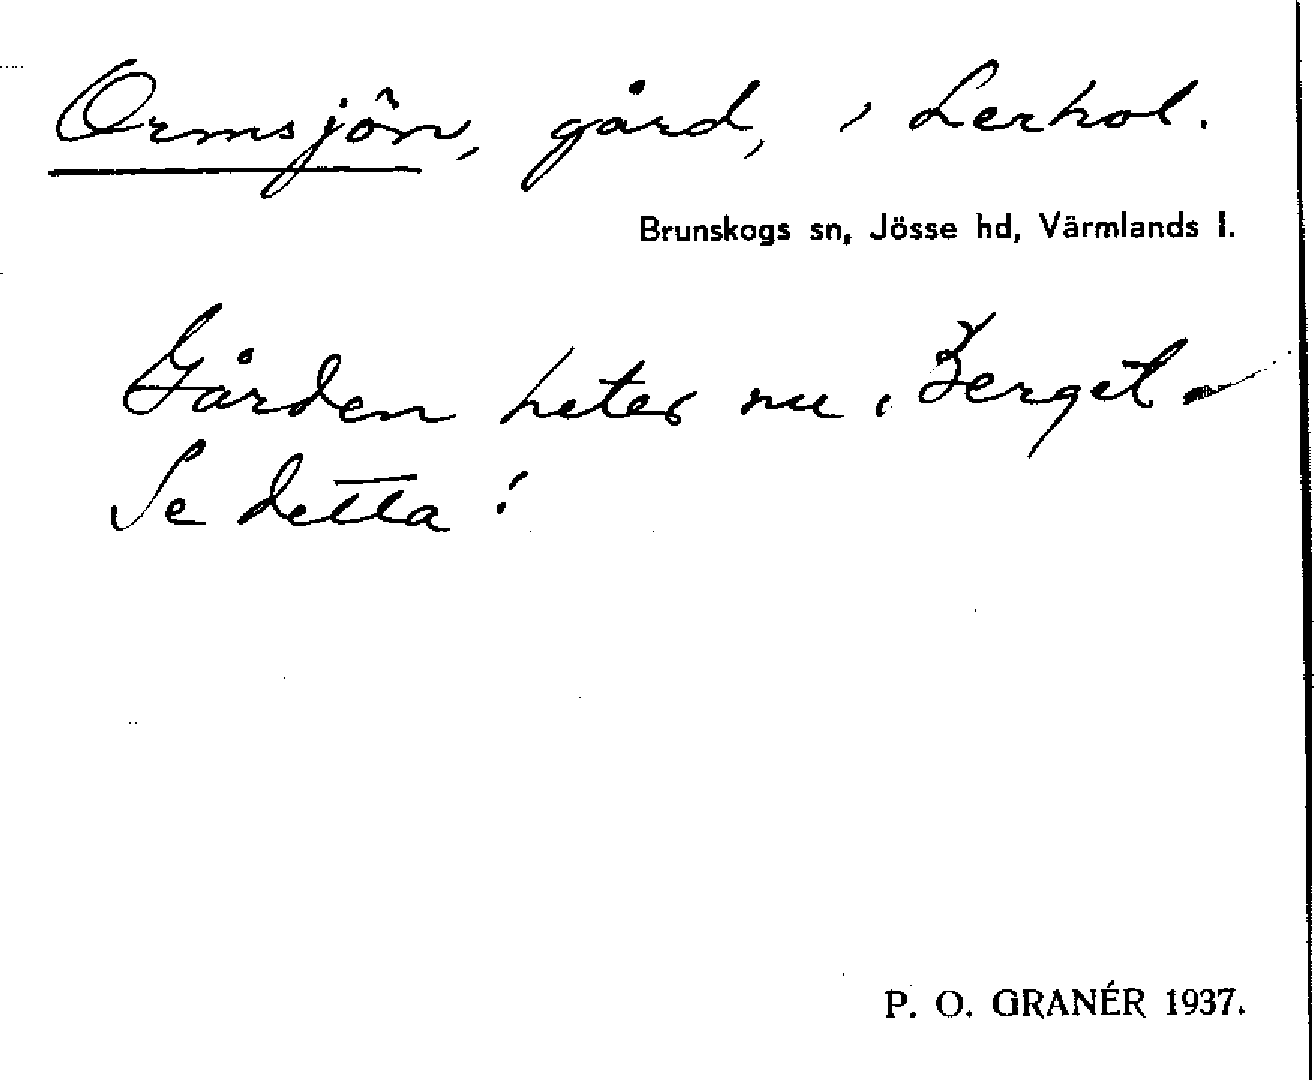 Ormsjön, gård, i Lerhol.
Brunskogs sn, Jösse hd, Värmlands l.
Gården heter nu, Berget -
Se detta!
P. O. GRANÉR 1937.